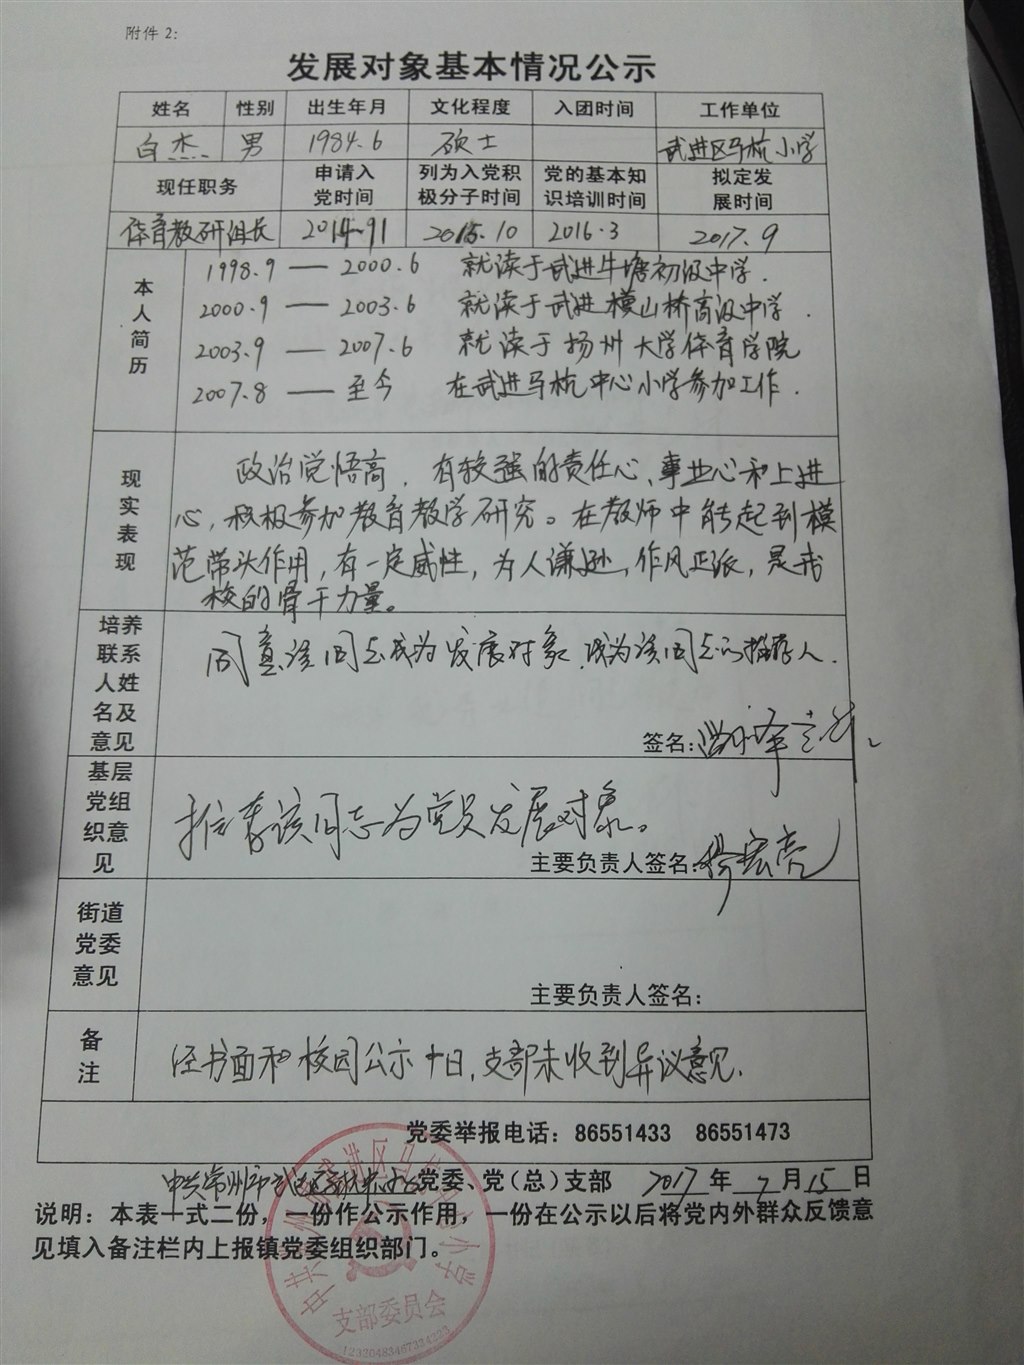 附件 2:
发展对象基本情况公示
姓名 性别 出生年月 文化程度 入团时间 工作单位
白杰 男 1984.6 硕士 武进区马杭小学
现任职务 申请入党时间 列为入党积极分子时间 党的基本知识培训时间 拟定发展时间
体育教研组长 2014.11 2015.10 2016.3 2017.9
本人简历
1998.9 — 2000.6 就读于武进牛塘初级中学.
2000.9 — 2003.6 就读于武进横山桥高级中学.
2003.9 — 2007.6 就读于扬州大学体育学院
2007.8 — 至今 在武进马杭中心小学参加工作.
现实表现
政治觉悟高,有较强的责任心、事业心和上进
心,积极参加教育教学研究。在教师中能起到模
范带头作用,有一定威性,为人谦逊,作风正派,是我
校的骨干力量。
培养联系人姓名及意见
同意该同志成为发展对象,成为该同志的推荐人.
签名:
基层党组织意见
推荐该同志为党员发展对象。
主要负责人签名:
街道党委意见
主要负责人签名:
备注
经书面和校园公示十日,支部未收到异议意见.
党委举报电话：86551433 86551473
中共常州市武进区 党委、党（总）支部 2017 年 7 月 15 日
说明：本表一式二份，一份作公示作用，一份在公示以后将党内外群众反馈意
见填入备注栏内上报镇党委组织部门。
支部委员会